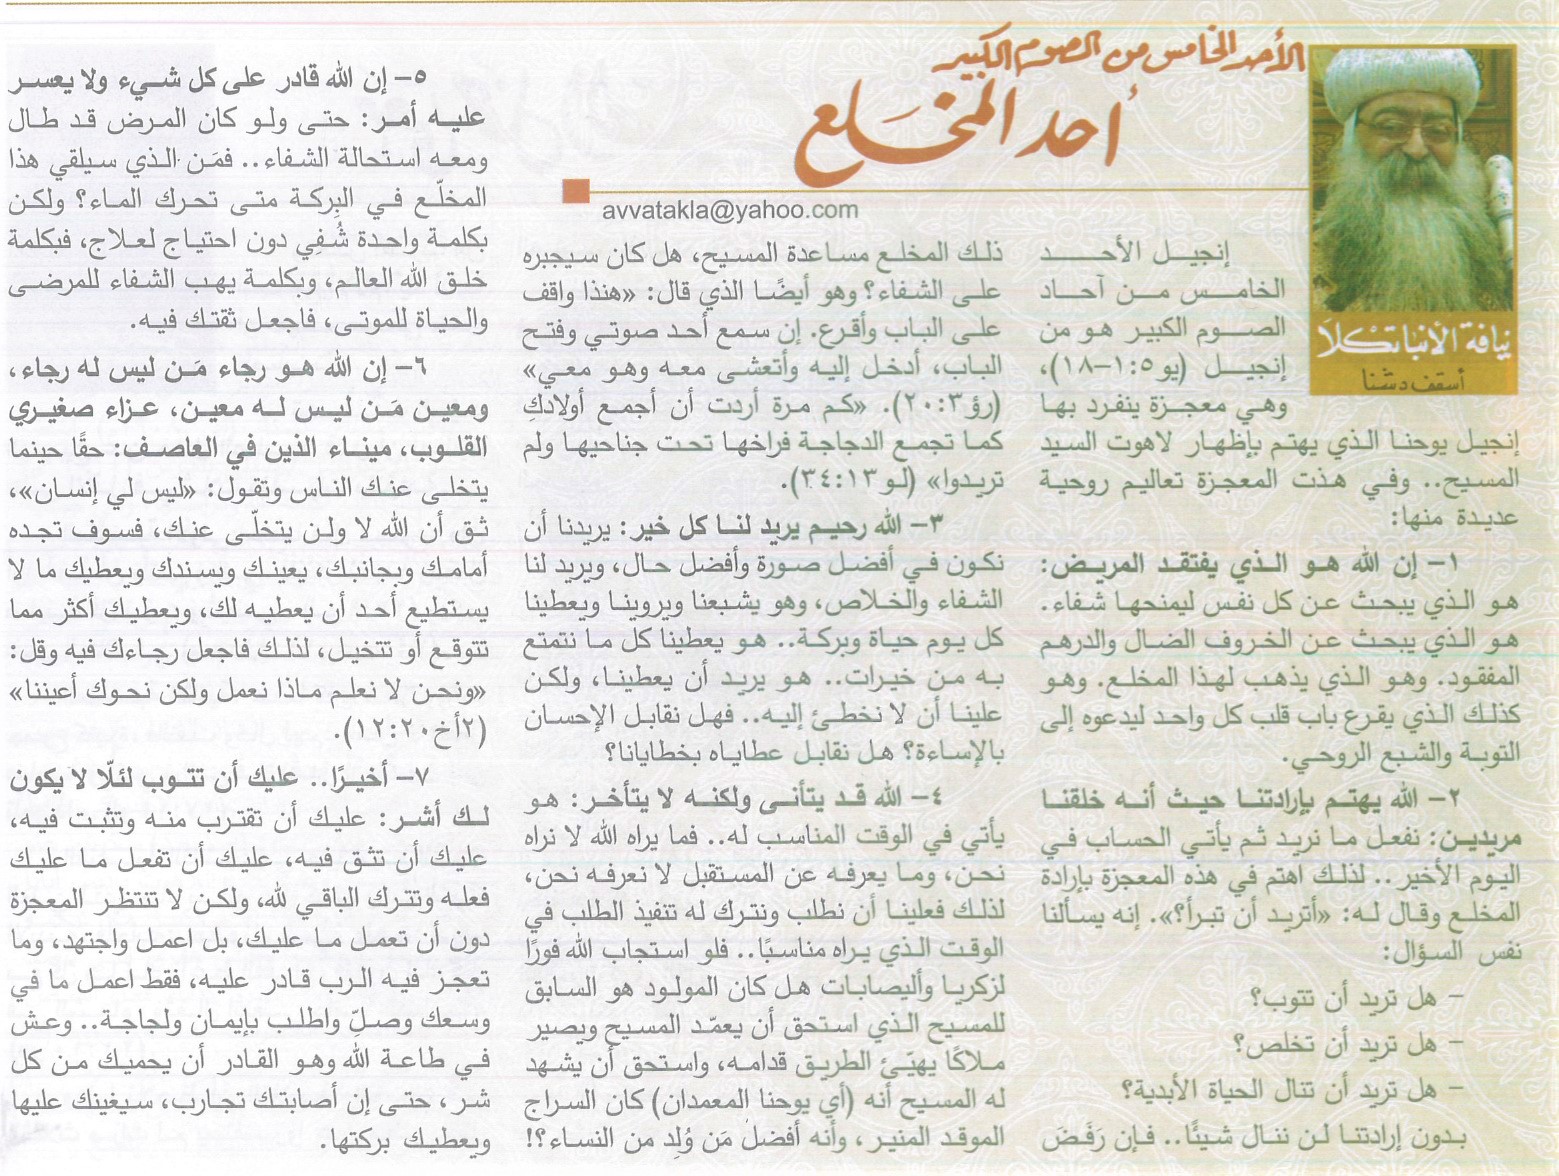 الأحد الخامس من الصوم الكبير
أحد المخلَّع
avvatakla@yahoo.com
نيافة الأنبا تكلا
أسقف دشنا
إنجيل الأحد
الخامس من آحاد
الصوم الكبير هو من
إنجيل (يو٥:١-١٨)،
وهي معجزة ينفرد بها
إنجيل يوحنا الذي يهتم بإظهار لاهوت السيد
المسيح.. وفي هذت المعجزة تعاليم روحية
عديدة منها:
١- إن الله هو الذي يفتقد المريض:
هو الذي يبحث عن كل نفس ليمنحها شفاء.
هو الذي يبحث عن الخروف الضال والدرهم
المفقود. وهو الذي يذهب لهذا المخلع. وهو
كذلك الذي يقرع باب قلب كل واحد ليدعوه إلى
التوبة والشبع الروحي.
٢- الله يهتم بإرادتنا حيث أنه خلقنا
مريدين: نفعل ما نريد ثم يأتي الحساب في
اليوم الأخير.. لذلك اهتم في هذه المعجزة بإرادة
المخلع وقال له: «أتريد أن تبرأ؟». إنه يسألنا
نفس السؤال:
- هل تريد أن تتوب؟
- هل تريد أن تخلص؟
- هل تريد أن تنال الحياة الأبدية؟
بدون إرادتنا لن ننال شيئًا.. فإن رَفَضَ
ذلك المخلع مساعدة المسيح، هل كان سيجبره
على الشفاء؟ وهو أيضًا الذي قال: «هنذا واقف
على الباب وأقرع. إن سمع أحد صوتي وفتح
الباب، أدخل إليه وأتعشى معه وهو معي»
(رؤ٣:٢٠). «كم مرة أردت أن أجمع أولادكِ
كما تجمع الدجاجة فراخها تحت جناحيها ولم
تريدوا» (لو١٣:٣٤).
٣- الله رحيم يريد لنا كل خير: يريدنا أن
نكون في أفضل صورة وأفضل حال، ويريد لنا
الشفاء والخلاص، وهو يشبعنا ويروينا ويعطينا
كل يوم حياة وبركة.. هو يعطينا كل ما نتمتع
به من خيرات.. هو يريد أن يعطينا، ولكن
علينا أن لا نخطئ إليه.. فهل نقابل الإحسان
بالإساءة؟ هل نقابل عطاياه بخطايانا؟
٤- الله قد يتأنى ولكنه لا يتأخر: هو
يأتي في الوقت المناسب له.. فما يراه الله لا نراه
نحن، وما يعرفه عن المستقبل لا نعرفه نحن،
لذلك فعلينا أن نطلب ونترك له تنفيذ الطلب في
الوقت الذي يراه مناسبًا.. فلو استجاب الله فورًا
لزكريا وأليصابات هل كان المولود هو السابق
للمسيح الذي استحق أن يعمّد المسيح ويصير
ملاكًا يهيّئ الطريق قدامه، واستحق أن يشهد
له المسيح أنه (أي يوحنا المعمدان) كان السراج
الموقد المنير، وأنه أفضل مَن وُلِد من النساء؟!
٥- إن الله قادر على كل شيء ولا يعسر
عليه أمر: حتى ولو كان المرض قد طال
ومعه استحالة الشفاء.. فمَن الذي سيلقي هذا
المخلّع في البِركة متى تحرك الماء؟ ولكن
بكلمة واحدة شُفِي دون احتياج لعلاج، فبكلمة
خلق الله العالم، وبكلمة يهب الشفاء للمرضى
والحياة للموتى، فاجعل ثقتك فيه.
٦- إن الله هو رجاء مَن ليس له رجاء،
ومعين مَن ليس له معين، عزاء صغيري
القلوب، ميناء الذين في العاصف: حقًا حينما
يتخلى عنك الناس وتقول: «ليس لي إنسان»،
ثق أن الله لا ولن يتخلّى عنك، فسوف تجده
أمامك وبجانبك، يعينك ويسندك ويعطيك ما لا
يستطيع أحد أن يعطيه لك، ويعطيك أكثر مما
تتوقع أو تتخيل، لذلك فاجعل رجاءك فيه وقل:
«ونحن لا نعلم ماذا نعمل ولكن نحوك أعيننا»
(٢أخ٢٠:١٢).
٧- أخيرًا.. عليك أن تتوب لئلّا لا يكون
لك أشر: عليك أن تقترب منه وتثبت فيه،
عليك أن تثق فيه، عليك أن تفعل ما عليك
فعله وتترك الباقي لله، ولكن لا تنتظر المعجزة
دون أن تعمل ما عليك، بل اعمل واجتهد، وما
تعجز فيه الرب قادر عليه، فقط اعمل ما في
وسعك وصلِّ واطلب بإيمان ولجاجة.. وعش
في طاعة الله وهو القادر أن يحميك من كل
شر، حتى إن أصابتك تجارب، سيغينك عليها
ويعطيك بركتها.